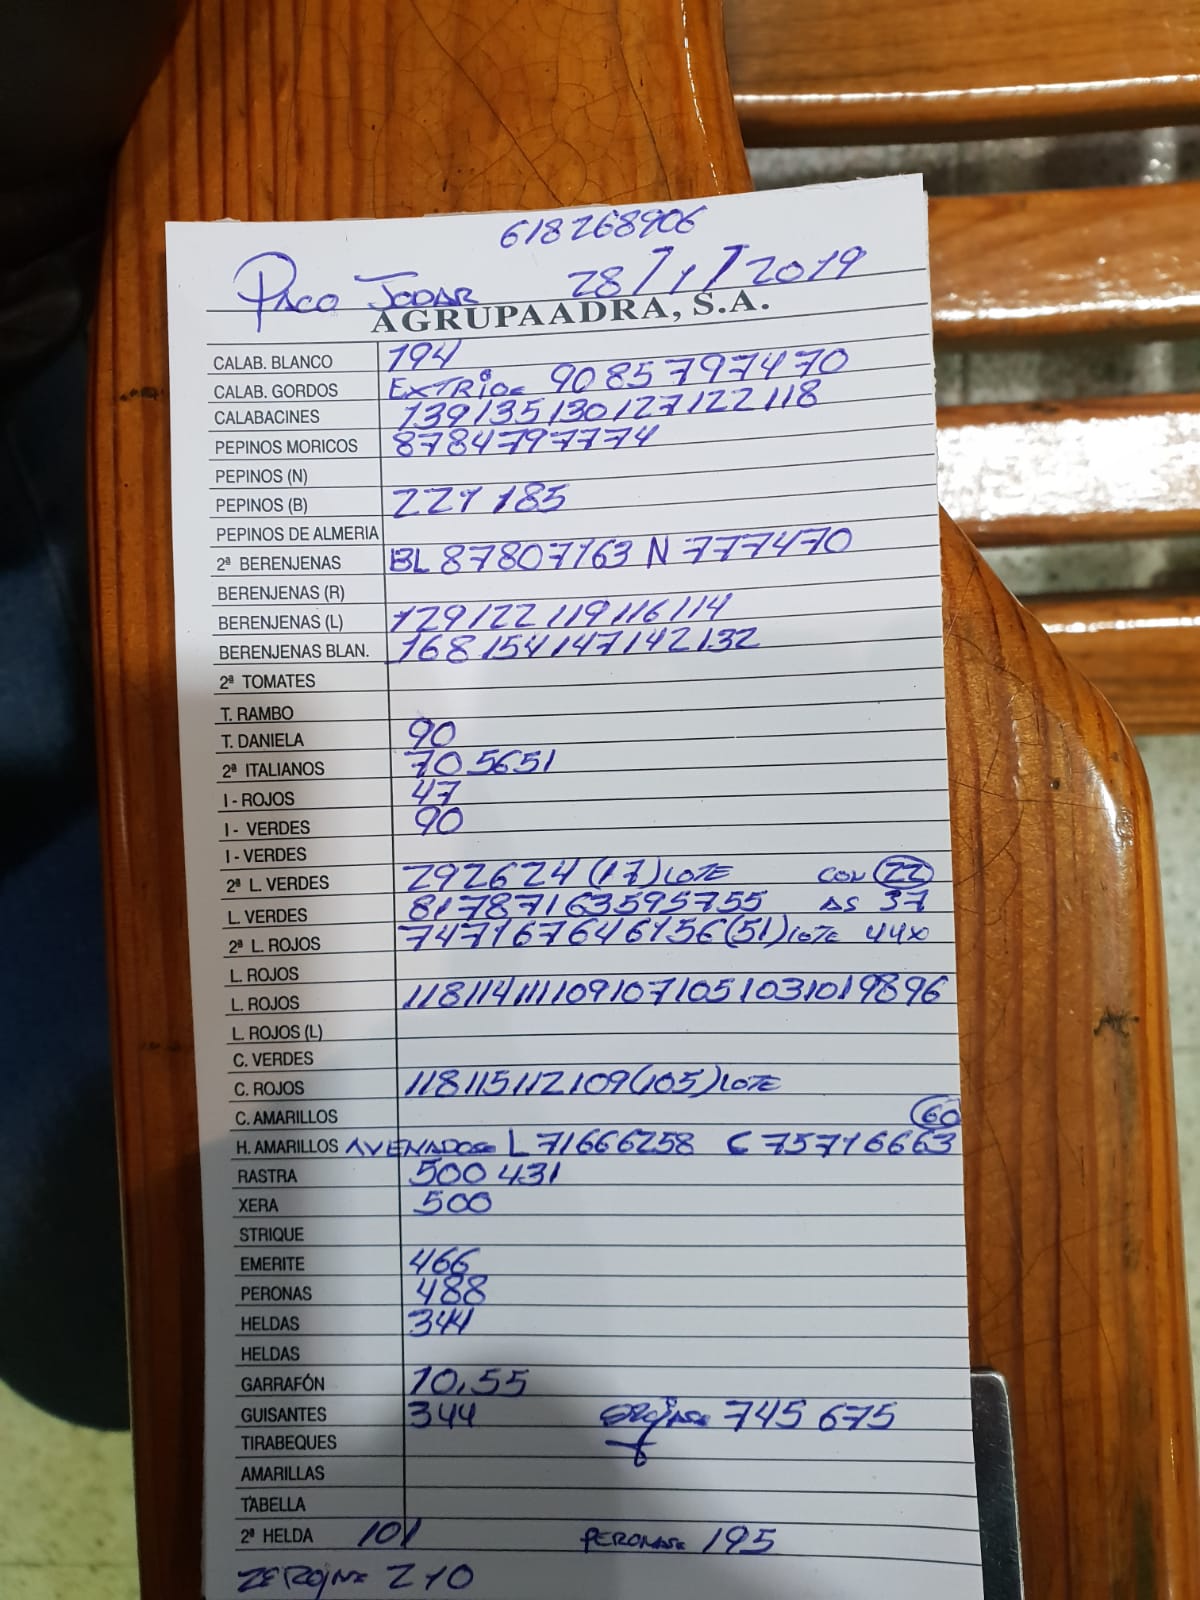 618268906
PACO JODAR 28/1/2019
AGRUPAADRA, S.A.
CALAB. BLANCO 194
CALAB. GORDOS 9085797470
CALABACINES 139135130127122118
PEPINOS MORICOS 8784797774
PEPINOS (N)
PEPINOS (B) 221 185
PEPINOS DE ALMERIA
2ª BERENJENAS BL 87807163 N 777470
BERENJENAS (R)
BERENJENAS (L) 129122119116114
BERENJENAS BLAN. 168154147142132
2ª TOMATES
T. RAMBO
T. DANIELA 90
2ª ITALIANOS 705651
I - ROJOS 47
I - VERDES 90
I - VERDES
2ª L. VERDES 292624(17)LOTE CON 22
L. VERDES 81787163595755 AS 37
2ª L. ROJOS 747167646156(51)LOTE
L. ROJOS
L. ROJOS 1181141111091071051031019896
L. ROJOS (L)
C. VERDES
C. ROJOS 118115112109(105)LOTE
C. AMARILLOS 60
H. AMARILLOS L 71666258 C 75716663
RASTRA 500 431
XERA 500
STRIQUE
EMERITE 466
PERONAS 488
HELDAS 344
HELDAS
GARRAFÓN 10,55
GUISANTES 344 745 675
TIRABEQUES
AMARILLAS
TABELLA
2ª HELDA 101 PERONAS 195
210